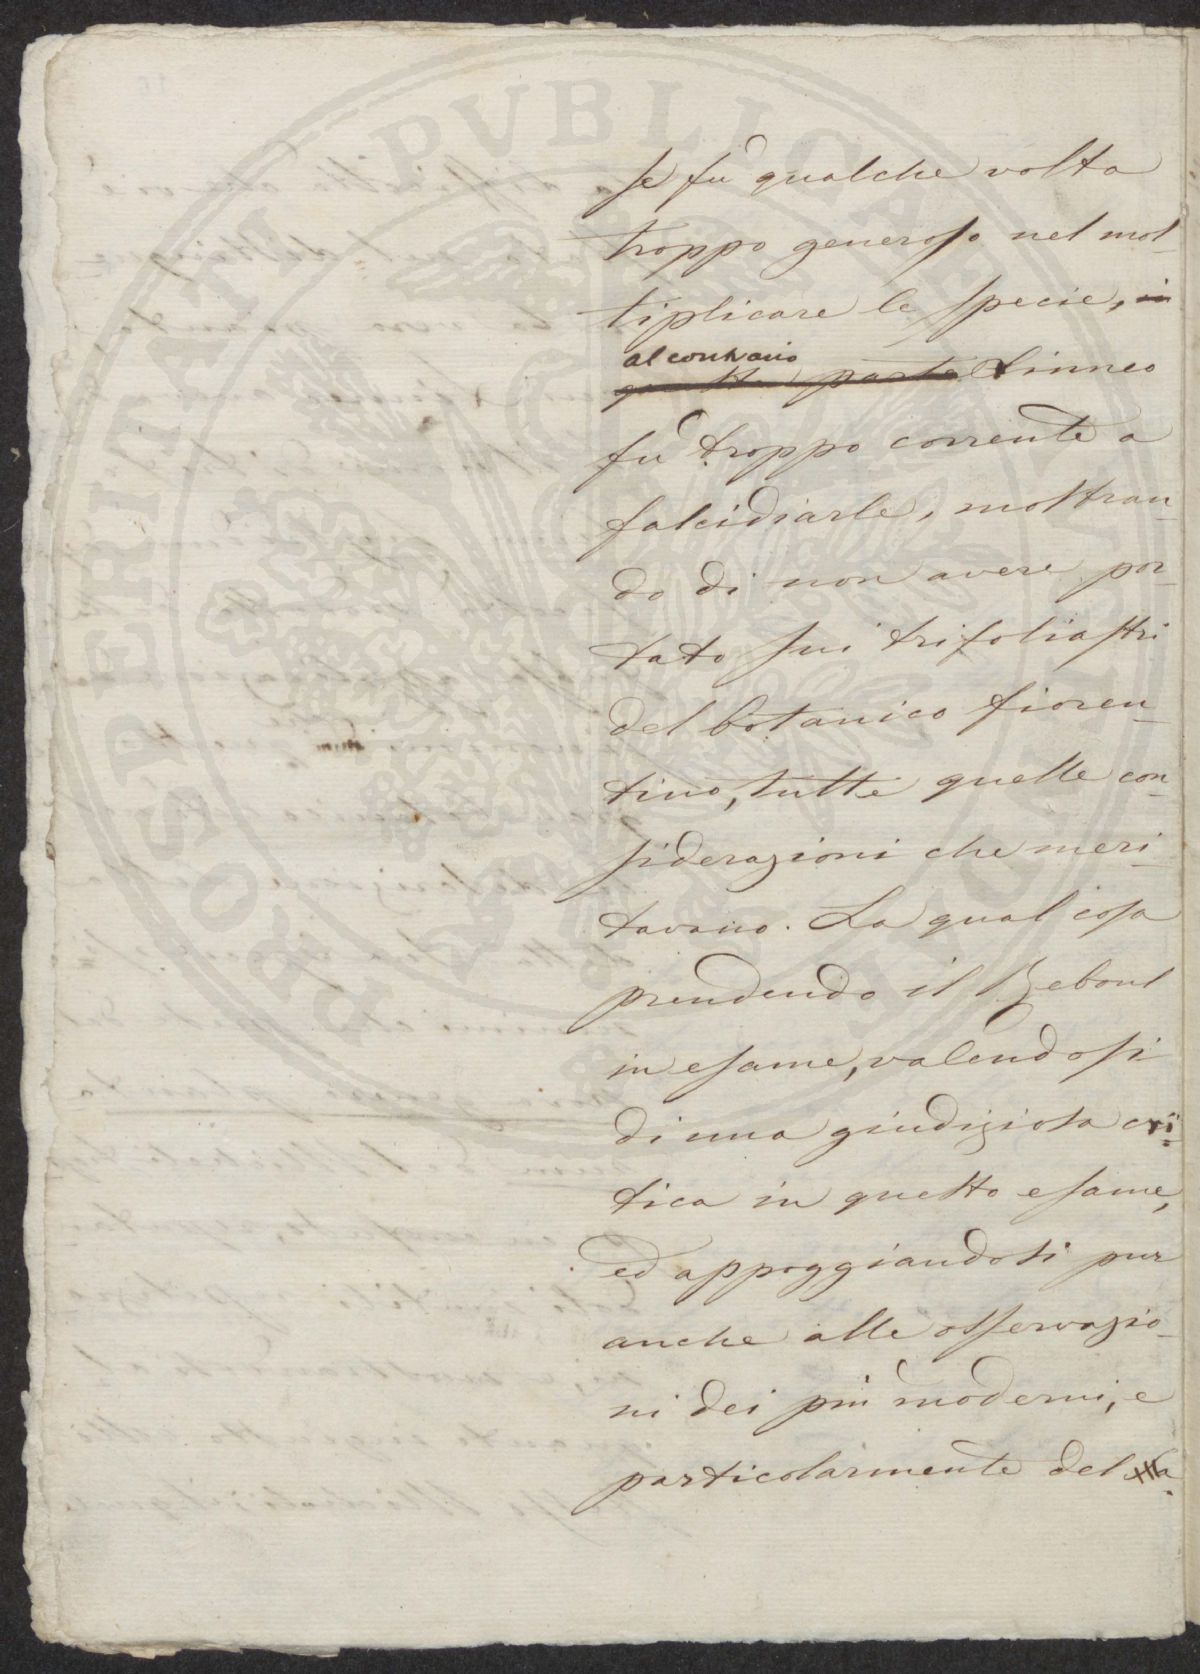 PROSPERITATI PVBLICAE AVGENDAE
se fu qualche volta
troppo generoso nel mol-
tiplicare le specie, in
al contrario
questa parte Linneo
fu troppo corrente a
falcidiarle, mostran-
do di non avere por-
tato sui trifoliastri
del botanico fioren-
tino, tutte quelle con-
siderazioni che meri-
tavano. La qual cosa
prendendo il Reboul
in esame, valendosi
di una giudiziosa cri-
tica in questo esame,
ed appoggiandosi pur
anche alle osservazio-
ni dei più moderni, e
particolarmente del